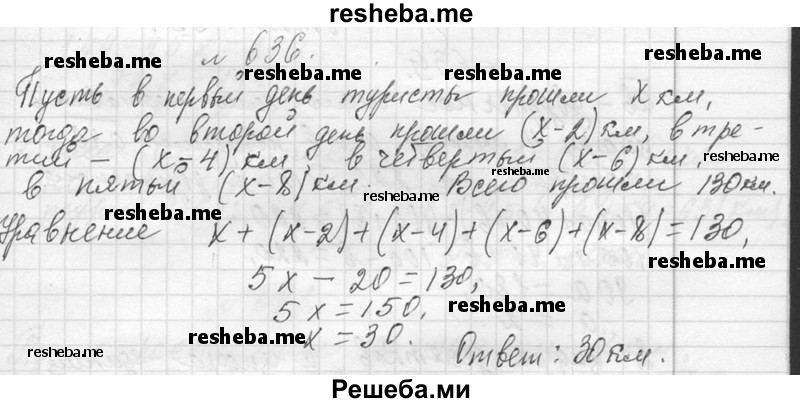 resheba.me
№ 636.
resheba.me resheba.me
Пусть в первый день туристы прошли x км,
resheba.me resheba.me
тогда во второй день прошли (x-2) км, в тре-
тий - (x-4) км, в четвертый (x-6) км, resheba.me
resheba.me
в пятый (x-8) км. Всего прошли 130 км.
resheba.me resheba.me
Уравнение x+(x-2)+(x-4)+(x-6)+(x-8)=130,
resheba.me
5x-20=130,
5x=150, resheba.me
resheba.me x=30.
resheba.me Ответ: 30 км.
Решеба.ми